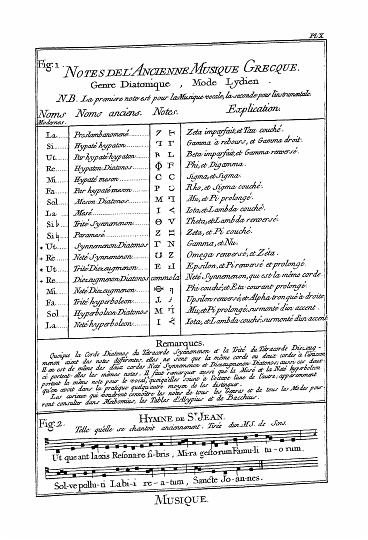 Pl. X
Fig. 1.
NOTES DE L'ANCIENNE MUSIQUE GRECQUE.
Genre Diatonique, Mode Lydien.
N.B. La premiere note est pour la Musique vocale, la seconde pour l'instrumentale.
Noms Modernes. Noms anciens. Notes. Explication.
La Proslambanomené Zeta imparfait, et Tau couché.
Si Hypaté hypaton Γ Gamma à rebours, et Gamma droit.
Ut Par hypaté hypaton Beta imparfait, et Gamma renversé.
Re Hypaton Diatonos Φ F Phi, et Digamma.
Mi Hypaté meson C C Sigma, et Sigma.
Fa Par hypaté meson P Rho, et Sigma couché.
Sol Meson Diatonos M Mu, et Pi prolongé.
La Mesé I Iota, et Lambda couché.
Si b Trité Synnemenon Θ V Theta, et Lambda renversé.
Si Paramesé Z Zeta, et Pi couché.
* Ut Synnemenon Diatonos Γ N Gamma, et Nu.
* Re Neté Synnemenon Z Omega renversé, et Zéta.
* Ut Trité Diezeugmenon E Epsilon, et Pi renversé et prolongé.
* Re Diezeugmenon Diatonos comme la Neté Synnemenon, qui est la même corde
Mi Neté Diezeugmenon η Phi couché, et Eta courant prolongé
Fa Trité hyperboleon Upsilon renversé, et Alpha tronqué à droite
Sol Hyperboleon Diatonos M Mu, et Pi prolongé, surmonté d'un accent.
La Neté hyperboleon I Iota, et Lambda couché, surmonté d'un accent
Remarques.
Quoique la Corde Diatonos du Tétracorde Synnemenon et la Trité du Tétracorde Diezeugmenon
aient des notes differentes, elles ne sont que la même corde ou deux cordes à l'unisson
Il en est de même des deux cordes Neté Synnemenon et Diezeugmenon Diatonos; aussi ces deux-
ci portent-elles les mêmes notes. Il faut remarquer aussi que la Mesé et la Neté hyperboleon
portent la même note pour le vocal, quoiqu'elles soient à l'octave l'une de l'autre; apparemment
qu'on avoit dans la pratique quelqu'autre moyen de les distinguer.
Les curieux qui voudront connoître les notes de tous les Genres et de tous les Modes pourront
consulter dans Meibomius, les Tables d'Alypius et de Bacchius.
Fig. 2.
HYMNE DE St JEAN.
Telle qu'elle se chantoit anciennement. Tirée d'un M.S. de Sens.
Ut queant laxis Resonare fi-bris, Mi-ra gestorum Famu-li tu-o rum,
Sol-ve pollu-ti Labi-i re-a-tum, Sancte Jo-an-nes.
MUSIQUE.